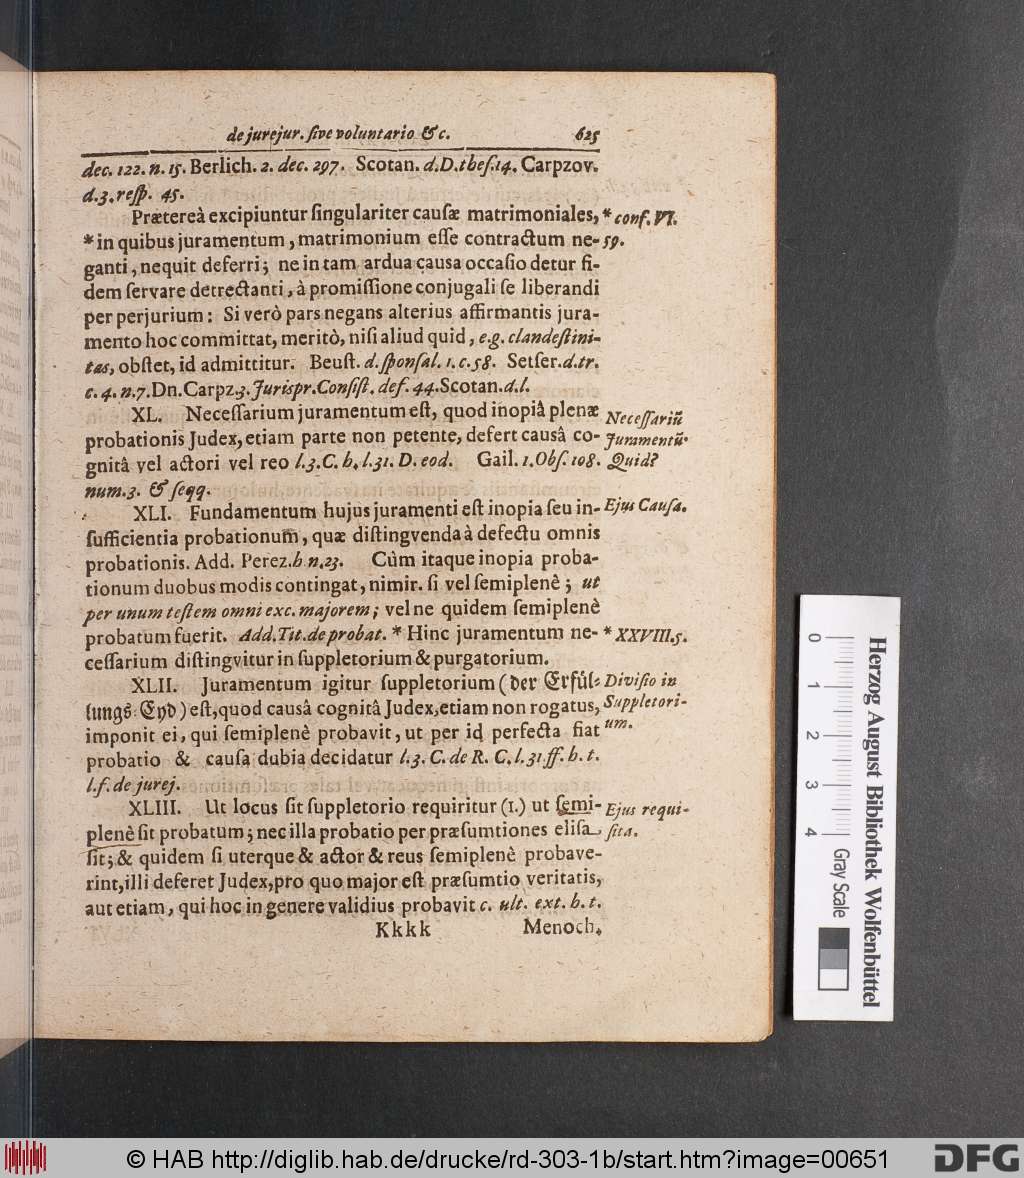 de jurejur. ſive voluntario &c. 625
dec. 122. n. 15. Berlich. 2. dec. 297. Scotan. d. D. theſ. 14. Carpzov.
d. 3. reſp. 45.
Prætereà excipiuntur ſingulariter cauſæ matrimoniales,
* conf. VI.
* in quibus juramentum, matrimonium eſſe contractum ne-
59.
ganti, nequit deferri; ne in tam ardua cauſa occaſio detur fi-
dem ſervare detrectanti, à promiſſione conjugali ſe liberandi
per perjurium: Si verò pars negans alterius affirmantis jura-
mento hoc committat, meritò, niſi aliud quid, e.g. clandeſtini-
tas, obſtet, id admittitur. Beuſt. d. ſponſal. 1. c. 58. Setſer. d. tr.
c. 4. n. 7. Dn. Carpz. 3. Jurispr. Conſiſt. def. 44. Scotan. d. l.
XL. Neceſſarium juramentum eſt, quod inopiâ plenæ
Neceſſariũ
probationis Judex, etiam parte non petente, defert causâ co-
Juramentũ
gnitâ vel actori vel reo l. 3. C. h. l. 31. D. eod. Gail. 1. Obſ. 108.
Quid?
num. 3. & ſeqq.
XLI. Fundamentum hujus juramenti eſt inopia ſeu in-
Ejus Cauſa.
ſufficientia probationum, quæ diſtingvenda à defectu omnis
probationis. Add. Perez. h n. 23. Cùm itaque inopia proba-
tionum duobus modis contingat, nimir. ſi vel ſemiplenè; ut
per unum teſtem omni exc. majorem; vel ne quidem ſemiplenè
probatum fuerit. Add. Tit. de probat. * Hinc juramentum ne-
* XXVIII. 5.
ceſſarium diſtingvitur in ſuppletorium & purgatorium.
XLII. Juramentum igitur ſuppletorium (der Erfül-
Diviſio in
lungs-Eyd) eſt, quod causâ cognitâ Judex, etiam non rogatus,
Suppletori-
imponit ei, qui ſemiplenè probavit, ut per id perfecta fiat
um.
probatio & cauſa dubia decidatur l. 3. C. de R. C. l. 31 ff. h. t.
l. f. de jurej.
XLIII. Ut locus ſit ſuppletorio requiritur (1.) ut ſemi-
Ejus requi-
plenè ſit probatum; nec illa probatio per præſumtiones eliſa
ſita.
ſit; & quidem ſi uterque & actor & reus ſemiplenè probave-
rint, illi deferet Judex, pro quo major eſt præſumtio veritatis,
aut etiam, qui hoc in genere validius probavit c. ult. ext. h. t.
Kkkk Menoch.
0 1 2 3 4
Gray Scale
Herzog August Bibliothek Wolfenbüttel
© HAB http://diglib.hab.de/drucke/rd-303-1b/start.htm?image=00651
DFG